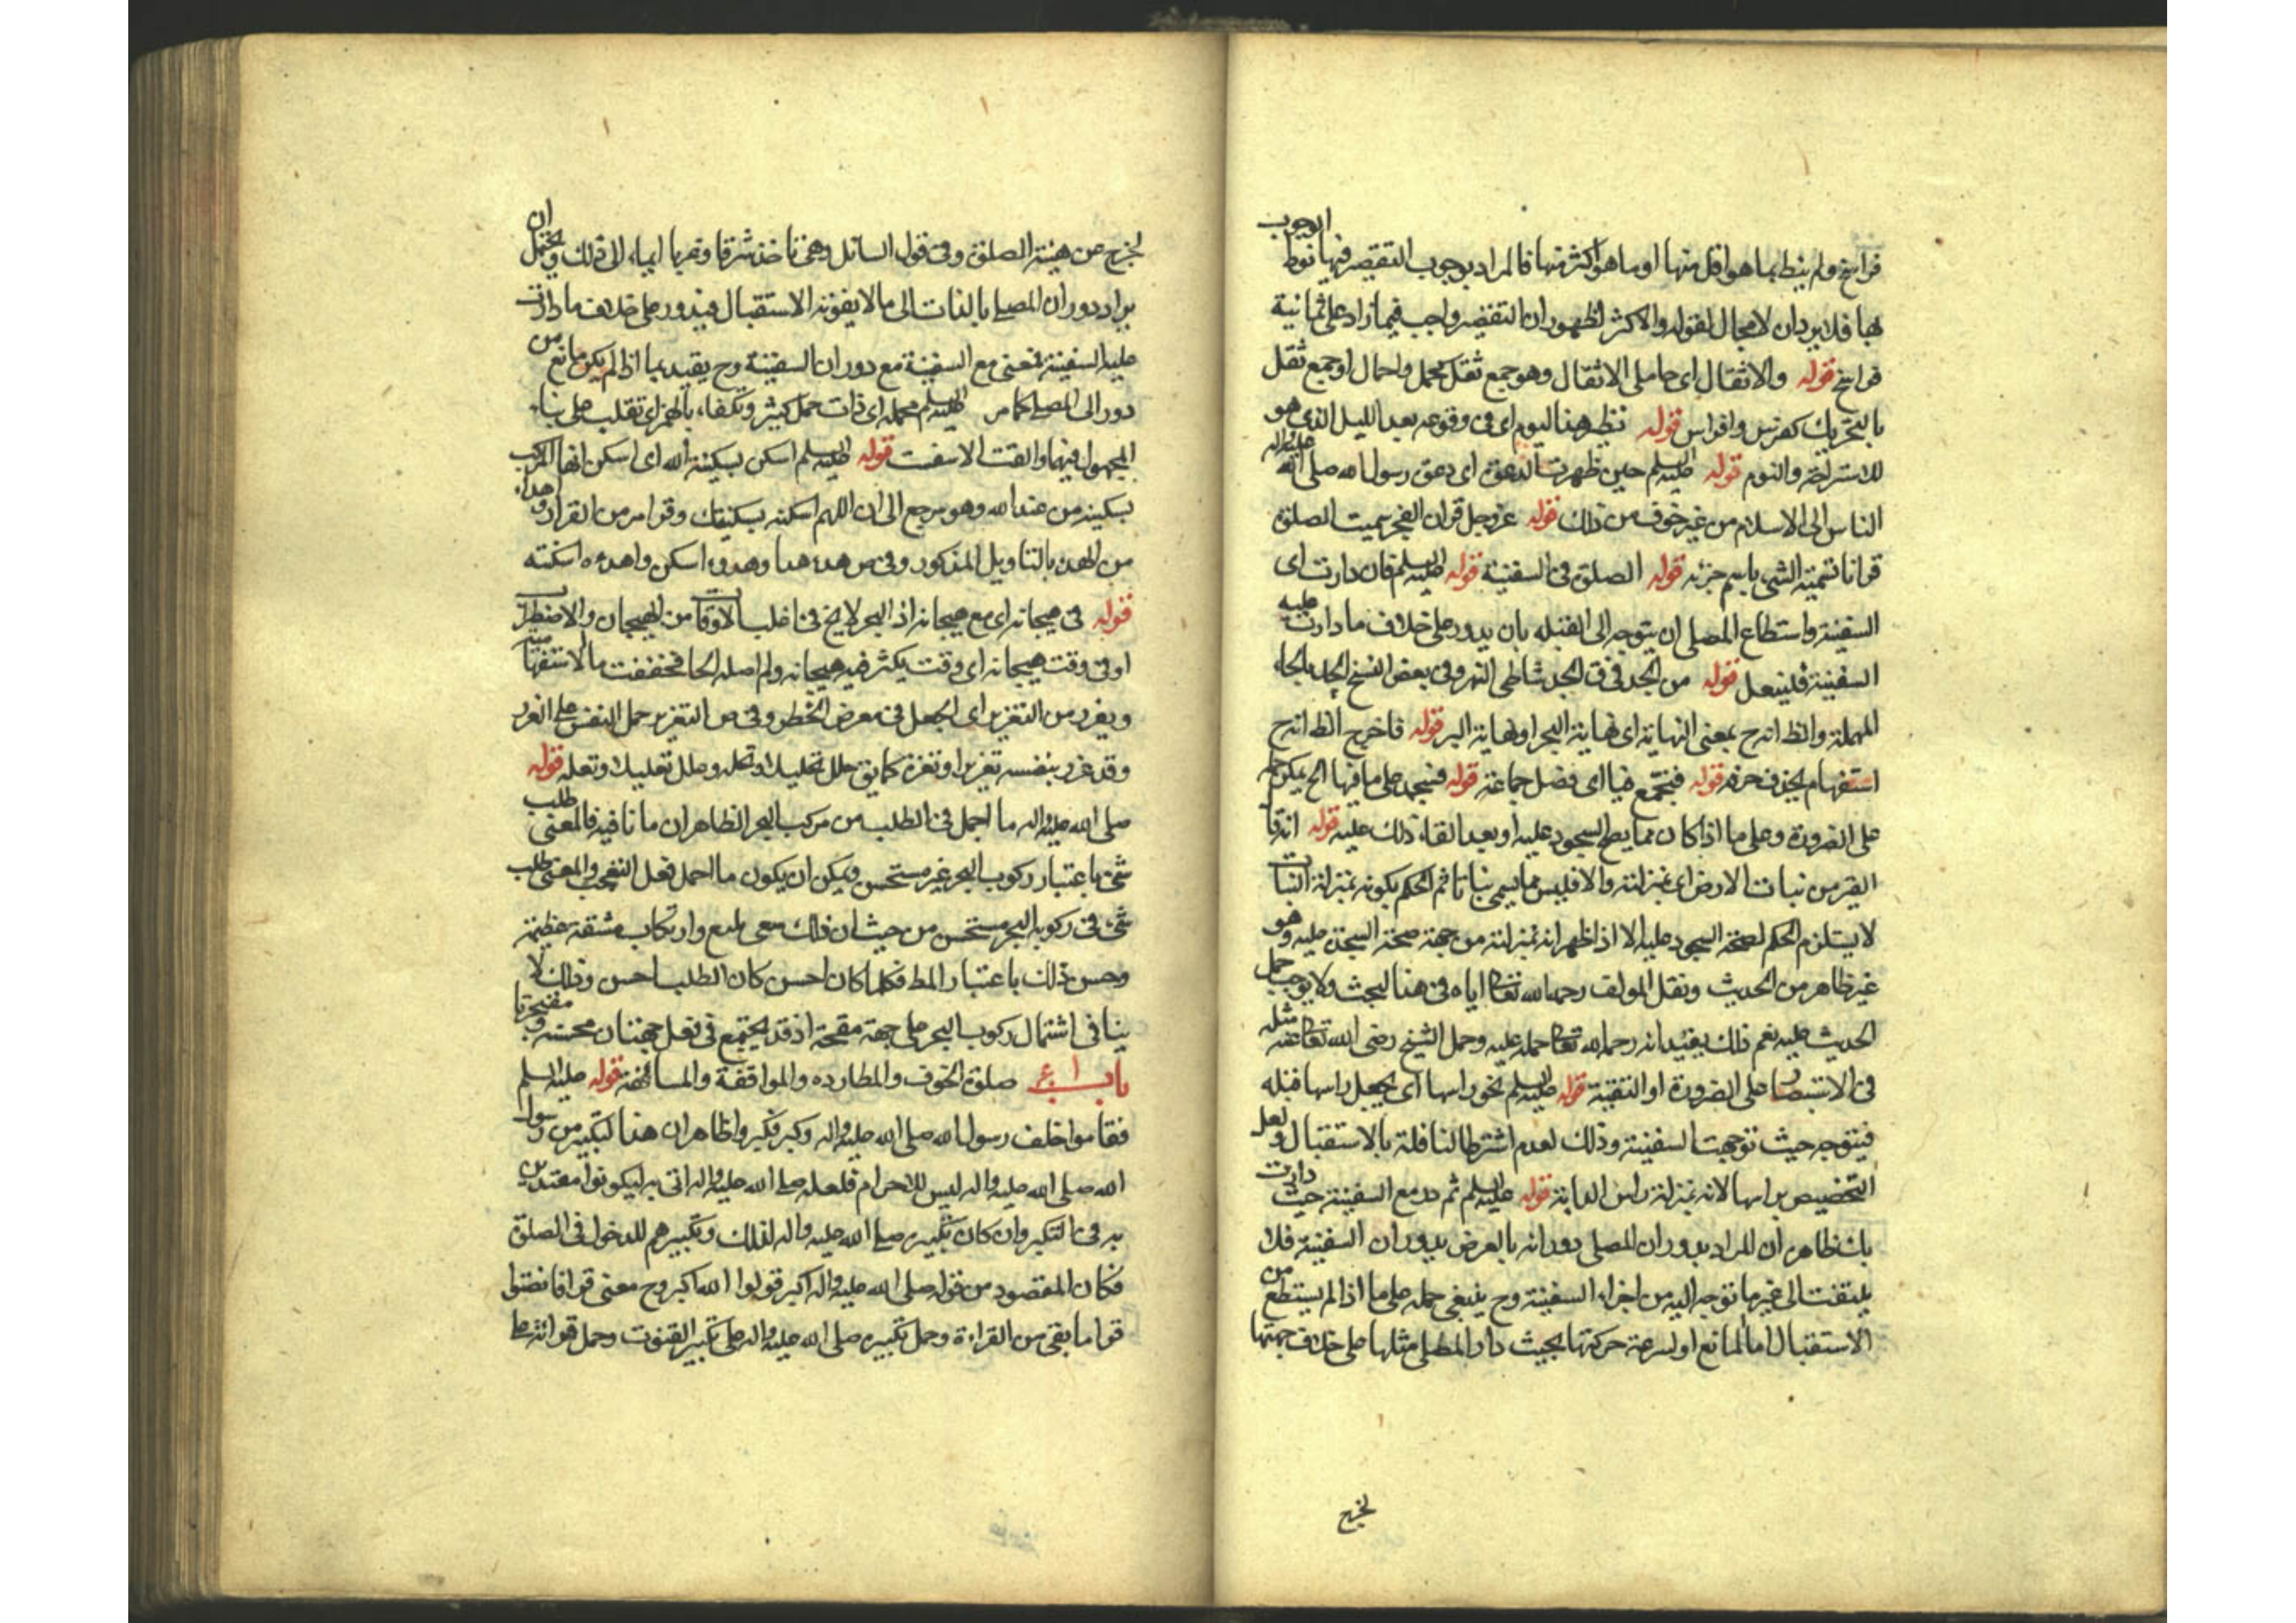 فراسخ ولم ينط بما هو اقل منها او ما هو اكثر منها فالمراد بوجوب التقصير فيها نوط الوجوب
بها فلا يرد ان لا مجال لقوله والاكثر لظهور ان التقصير واجب فيما زاد على ثمانية
فراسخ قوله والاثقال اى حاملى الاثقال وهو جمع ثقل كحمل واحمال او جمع ثقل
بالتحريك كفرس وافراس قوله نظير هذا اليوم اى فى وقوعه بعد الليل الذى هو
للاستراحة والنوم قوله عليه السلم حين ظهرت الدعوة اى دعوة رسول الله صلى الله عليه واله
الناس الى الاسلام من غير خوف من ذلك قوله عز وجل قران الفجر سميت الصلوة
قرانا تسمية الشى باسم جزئه قوله الصلوة فى السفينة قوله عليه السلم فان دارت اى
السفينة واستطاع المصلى ان يتوجه الى القبلة بان يدور على خلاف ما دارت عليه
السفينة فليفعل قوله من الجد فى ق الجد شاطى النهر وفى بعض النسخ الحد بالحاء
المهملة والظ انه ح بمعنى النهاية اى نهاية البحر او نهاية البر قوله فاخرج الظ انه ح
استفهام بحذف حرفه قوله فنجمع فيها اى فضل جماعة قوله فنسجد على ما فيها الخ يمكن حمله
على الضرورة وعلى ما اذا كان مما يصح السجود عليه او بعد القاء ذلك عليه قوله انه قا
القير من نبات الارض اى بمنزلته والا فليس مما يسمى نباتا ثم الحكم بكونه بمنزلة النبات
لا يستلزم الحكم لصحة السجود عليه الا اذا ظهر انه بمنزلته من جهة صحة السجدة عليه وهو
غير ظاهر من الحديث ونقل المولف رحمه الله تعالى اياه فى هذا البحث ولا يوجب حمل
الحديث عليه نعم ذلك يفيد انه رحمه الله تعالى حمله عليه وحمل الشيخ رضى الله تعالى عنه مثله
فى الاستبصار على الضرورة او التقية قوله عليه السلم نحو راسها اى يجعل راسها قبله
فيتوجه حيث توجهت السفينة وذلك لعدم اشتراط النافلة بالاستقبال ولعل
التخصيص براسها لانه بمنزلة راس الدابة قوله عليه السلم ثم در مع السفينة حيث دارت
بك ظاهر ان المراد بدوران المصلى دورانه بالعرض بدوران السفينة فلا
يلتفت الى غير ما توجه اليه من اجزاء السفينة وح ينبغى حمله على ما اذا لم يستطع من
الاستقبال اما لمانع او لسرعة حركتها بحيث دار المصلى مثلها على خلاف جهتها
لخرج
لخرج عن هيئة الصلوة وفى قول السائل وهى تاخذ شرقا وغربا ايماء الى ذلك ويحتمل ان
يراد دوران المصلى بالذات الى ما لا يفوته الاستقبال فيدور على خلاف ما دارت
عليه السفينة فمعنى مع السفينة مع دوران السفينة وح يقيد بما اذا لم يكن مانع من
دور الى المصلى كما مر عليه السلم محملة اى ذات حمل كثير وتكفاء بالهمز اى تقلب على بناء
المجهول فيهما والقت الاسفت قوله عليه السلم اسكن بسكينة الله اى اسكن ايها المركب
بسكينة من عند الله وهو يرجع الى ان اللهم اسكنه بسكينتك وقر امر من القرار وهداء
من الهدء بالتاويل المذكور وفى ص هدء هدا وهدوء اسكن واهدءه اسكنته
قوله فى هيجانه اى مع هيجانه اذ البحر لا يخ فى اغلب الاوقات من الهيجان والاضطراب
او فى وقت هيجانه اى وقت يكثر فيه هيجانه ولم اصله لما فخففت ما الاستفهامية
ويغرر من التغرير اى الجعل فى معرض الخطر وفى ص التغرير حمل النفس على الغرر
وقد غرر بنفسه تغريرا وتغرة كما يق حلل تحليلا وتحلة وعلل تعليلا وتعلة قوله
صلى الله عليه واله ما اجمل فى الطلب من مركب البحر الظاهر ان ما نافية فالمعنى طلب
شئ باعتبار ركوب البحر غير مستحسن ويمكن ان يكون ما اجمل فعل التعجب والمعنى طلب
شئ فى ركوب البحر مستحسن من حيث ان ذلك سعى بليغ وارتكاب مشقة عظيمة
وحسن ذلك باعتبار المط فكلما كان احسن كان الطلب احسن وذلك لا
ينافى اشتمال ركوب البحر على جهة مقبحة اذ قد يجتمع فى فعل جهتان محسنة ومقبحة
باب صلوة الخوف والمطارده والمواقفة والمسائفة قوله عليه السلم
فقاموا خلف رسول الله صلى الله عليه واله وكبر فكبروا ظاهر ان هذا لتكبير من رسول
الله صلى الله عليه واله ليس للاحرام فلعله صلى الله عليه واله اتى به ليكونوا مقتدين
به فى التكبير وان كان تكبيره صلى الله عليه واله لذلك وتكبيرهم للدخول فى الصلوة
فكان المقصود من قوله صلى الله عليه واله اكبر قولوا الله اكبر وح معنى قرا فانصتوا
قرا ما بقى من القراءة وحمل تكبيره صلى الله عليه واله على تكبير القنوت وحمل قرائته على